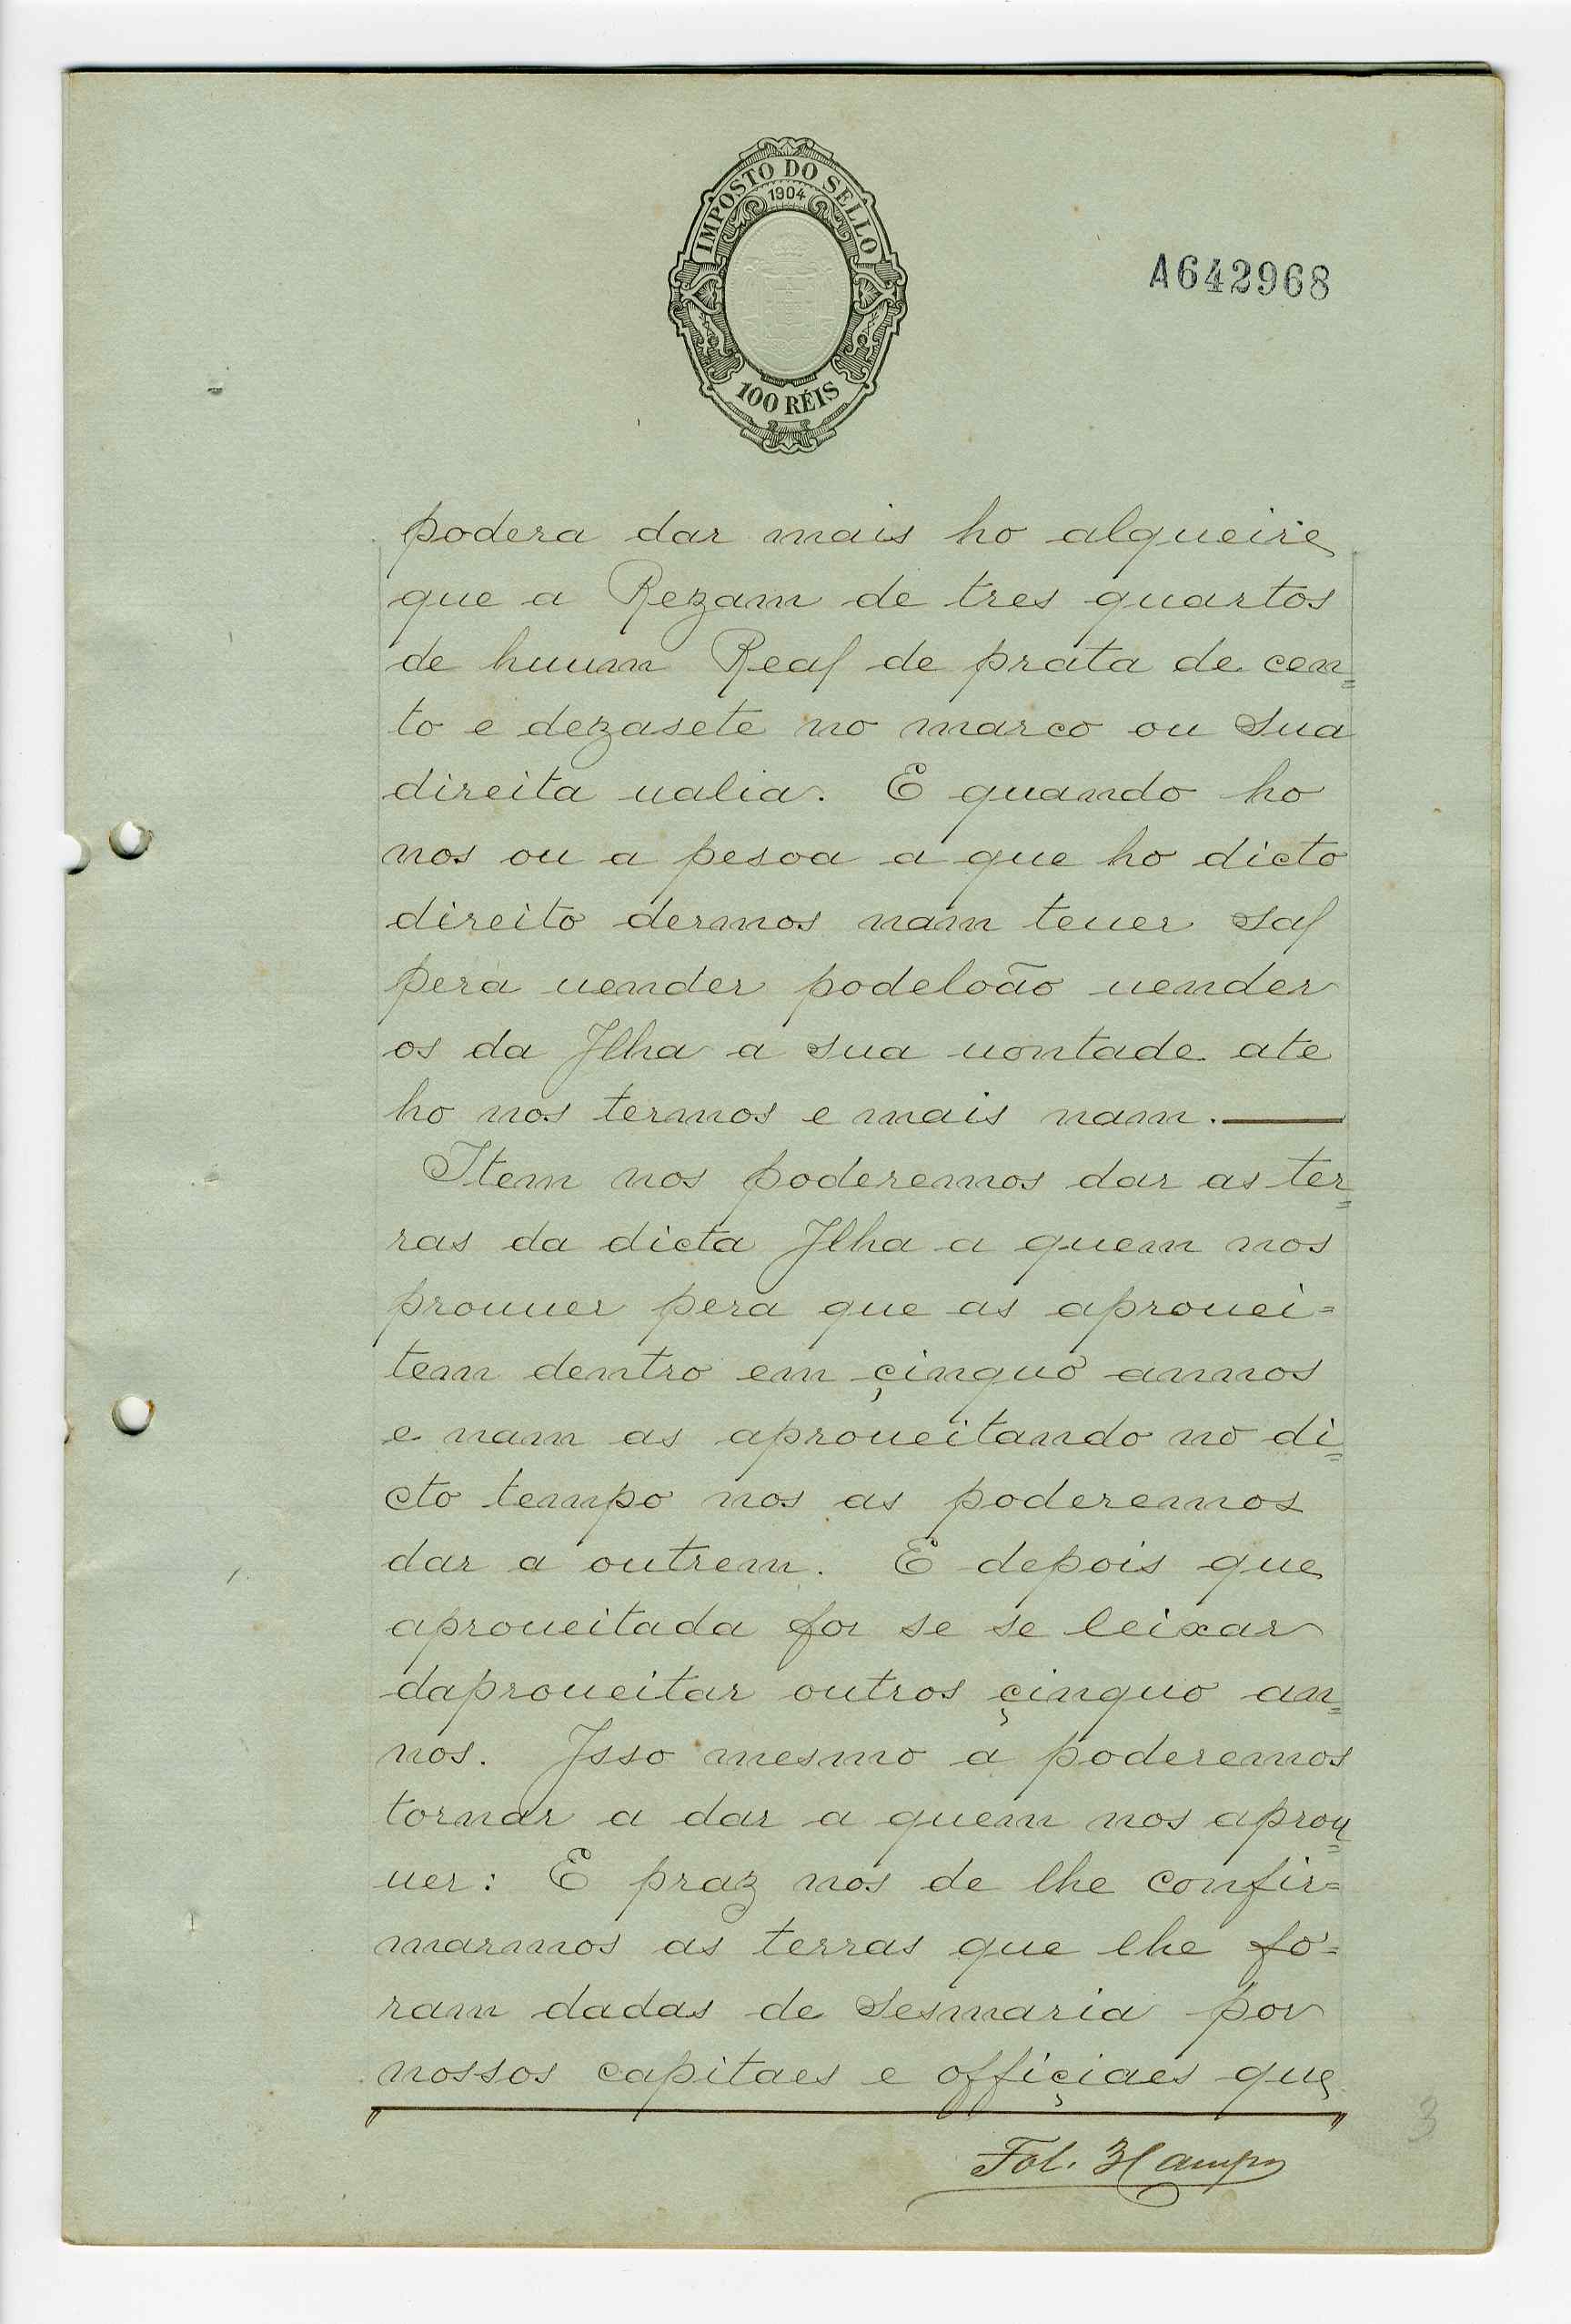 IMPOSTO DO SELLO
1904
100 RÉIS
A642968
podera dar mais ho alqueire
que a Rezam de tres quartos
de huum Real de prata de cen=
to e dezasete no marco ou sua
direita ualia. E quando ho
nos ou a pesoa a que ho dicto
direito dermos nam teuer sal
pera uender podeloão uender
os da Jlha a sua uontade ate
ho nos termos e mais nam.
Item nos poderemos dar as ter=
ras da dicta Jlha a quem nos
prouuer pera que as aprouei=
tem dentro em çinquo annos
e nam as aproueitando no di=
cto tempo nos as poderemos
dar a outrem. E depois que
aproueitada for se se leixar
daproueitar outros çinquo an=
nos. Jsso mesmo a poderemos
tornar a dar a quem nos aprou=
uer: E praz nos de lhe confir=
marmos as terras que lhe fo=
ram dadas de Sesmaria por
nossos capitaes e offiçiaes que
Fol. 3
3